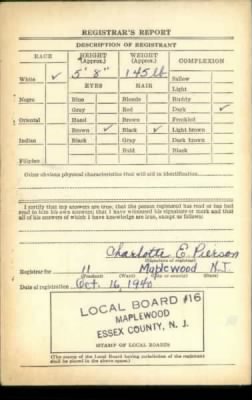 REGISTRAR'S REPORT
DESCRIPTION OF REGISTRANT
RACE HEIGHT (Approx.) WEIGHT (Approx.) COMPLEXION
White ✓ 5' 8" 145 lb. Sallow
EYES HAIR Light
Negro Blue Blonde Ruddy
Gray Red Dark ✓
Oriental Hazel Brown Freckled
Brown ✓ Black ✓ Light brown
Indian Black Gray Dark brown
Bald Black
Filipino
Other obvious physical characteristics that will aid in identification
I certify that my answers are true; that the person registered has read or has had
read to him his own answers; that I have witnessed his signature or mark and that
all of his answers of which I have knowledge are true, except as follows:
Charlotte E. Pierson
(Signature of registrar)
Registrar for 11 Maplewood N.J.
(Precinct) (Ward) (City or county) (State)
Date of registration Oct. 16, 1940
LOCAL BOARD #16
MAPLEWOOD
ESSEX COUNTY, N. J.
(STAMP OF LOCAL BOARD)
(The stamp of the Local Board having jurisdiction of the registrant
shall be placed in the above space.)